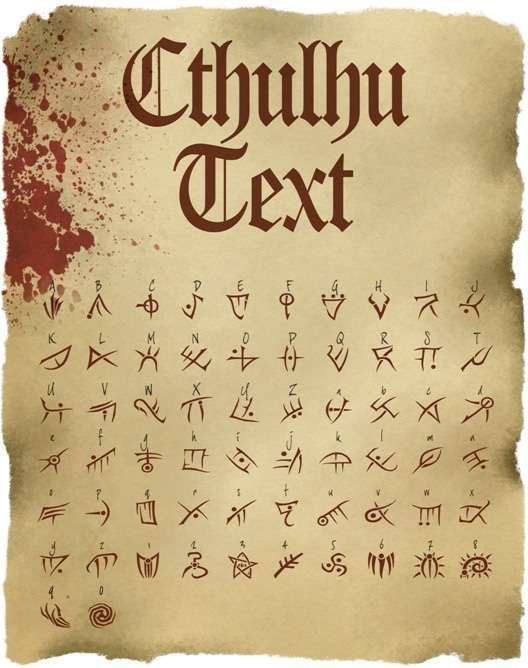 Cthulhu
Text
A B C D E F G H I J
K L M N O P Q R S T
U V W X Y Z a b c d
e f g h i j k l m n
o p q r s t u v w x
y z 1 2 3 4 5 6 7 8
9 0